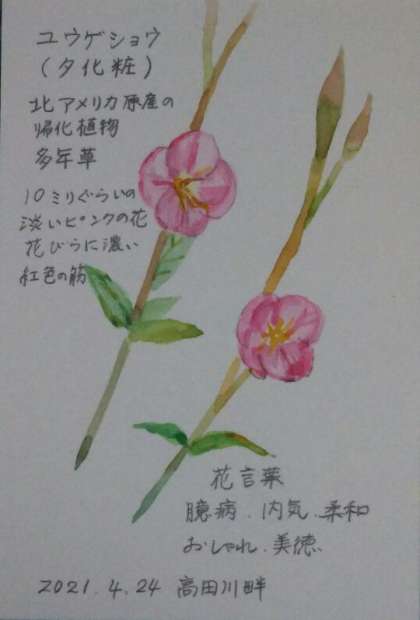 ユウゲショウ
(夕化粧)
北アメリカ原産の
帰化植物
多年草
10ミリぐらいの
淡いピンクの花
花びらに濃い
紅色の筋
花言葉
臆病.内気.柔和
おしゃれ.美徳
2021.4.24 高田川畔